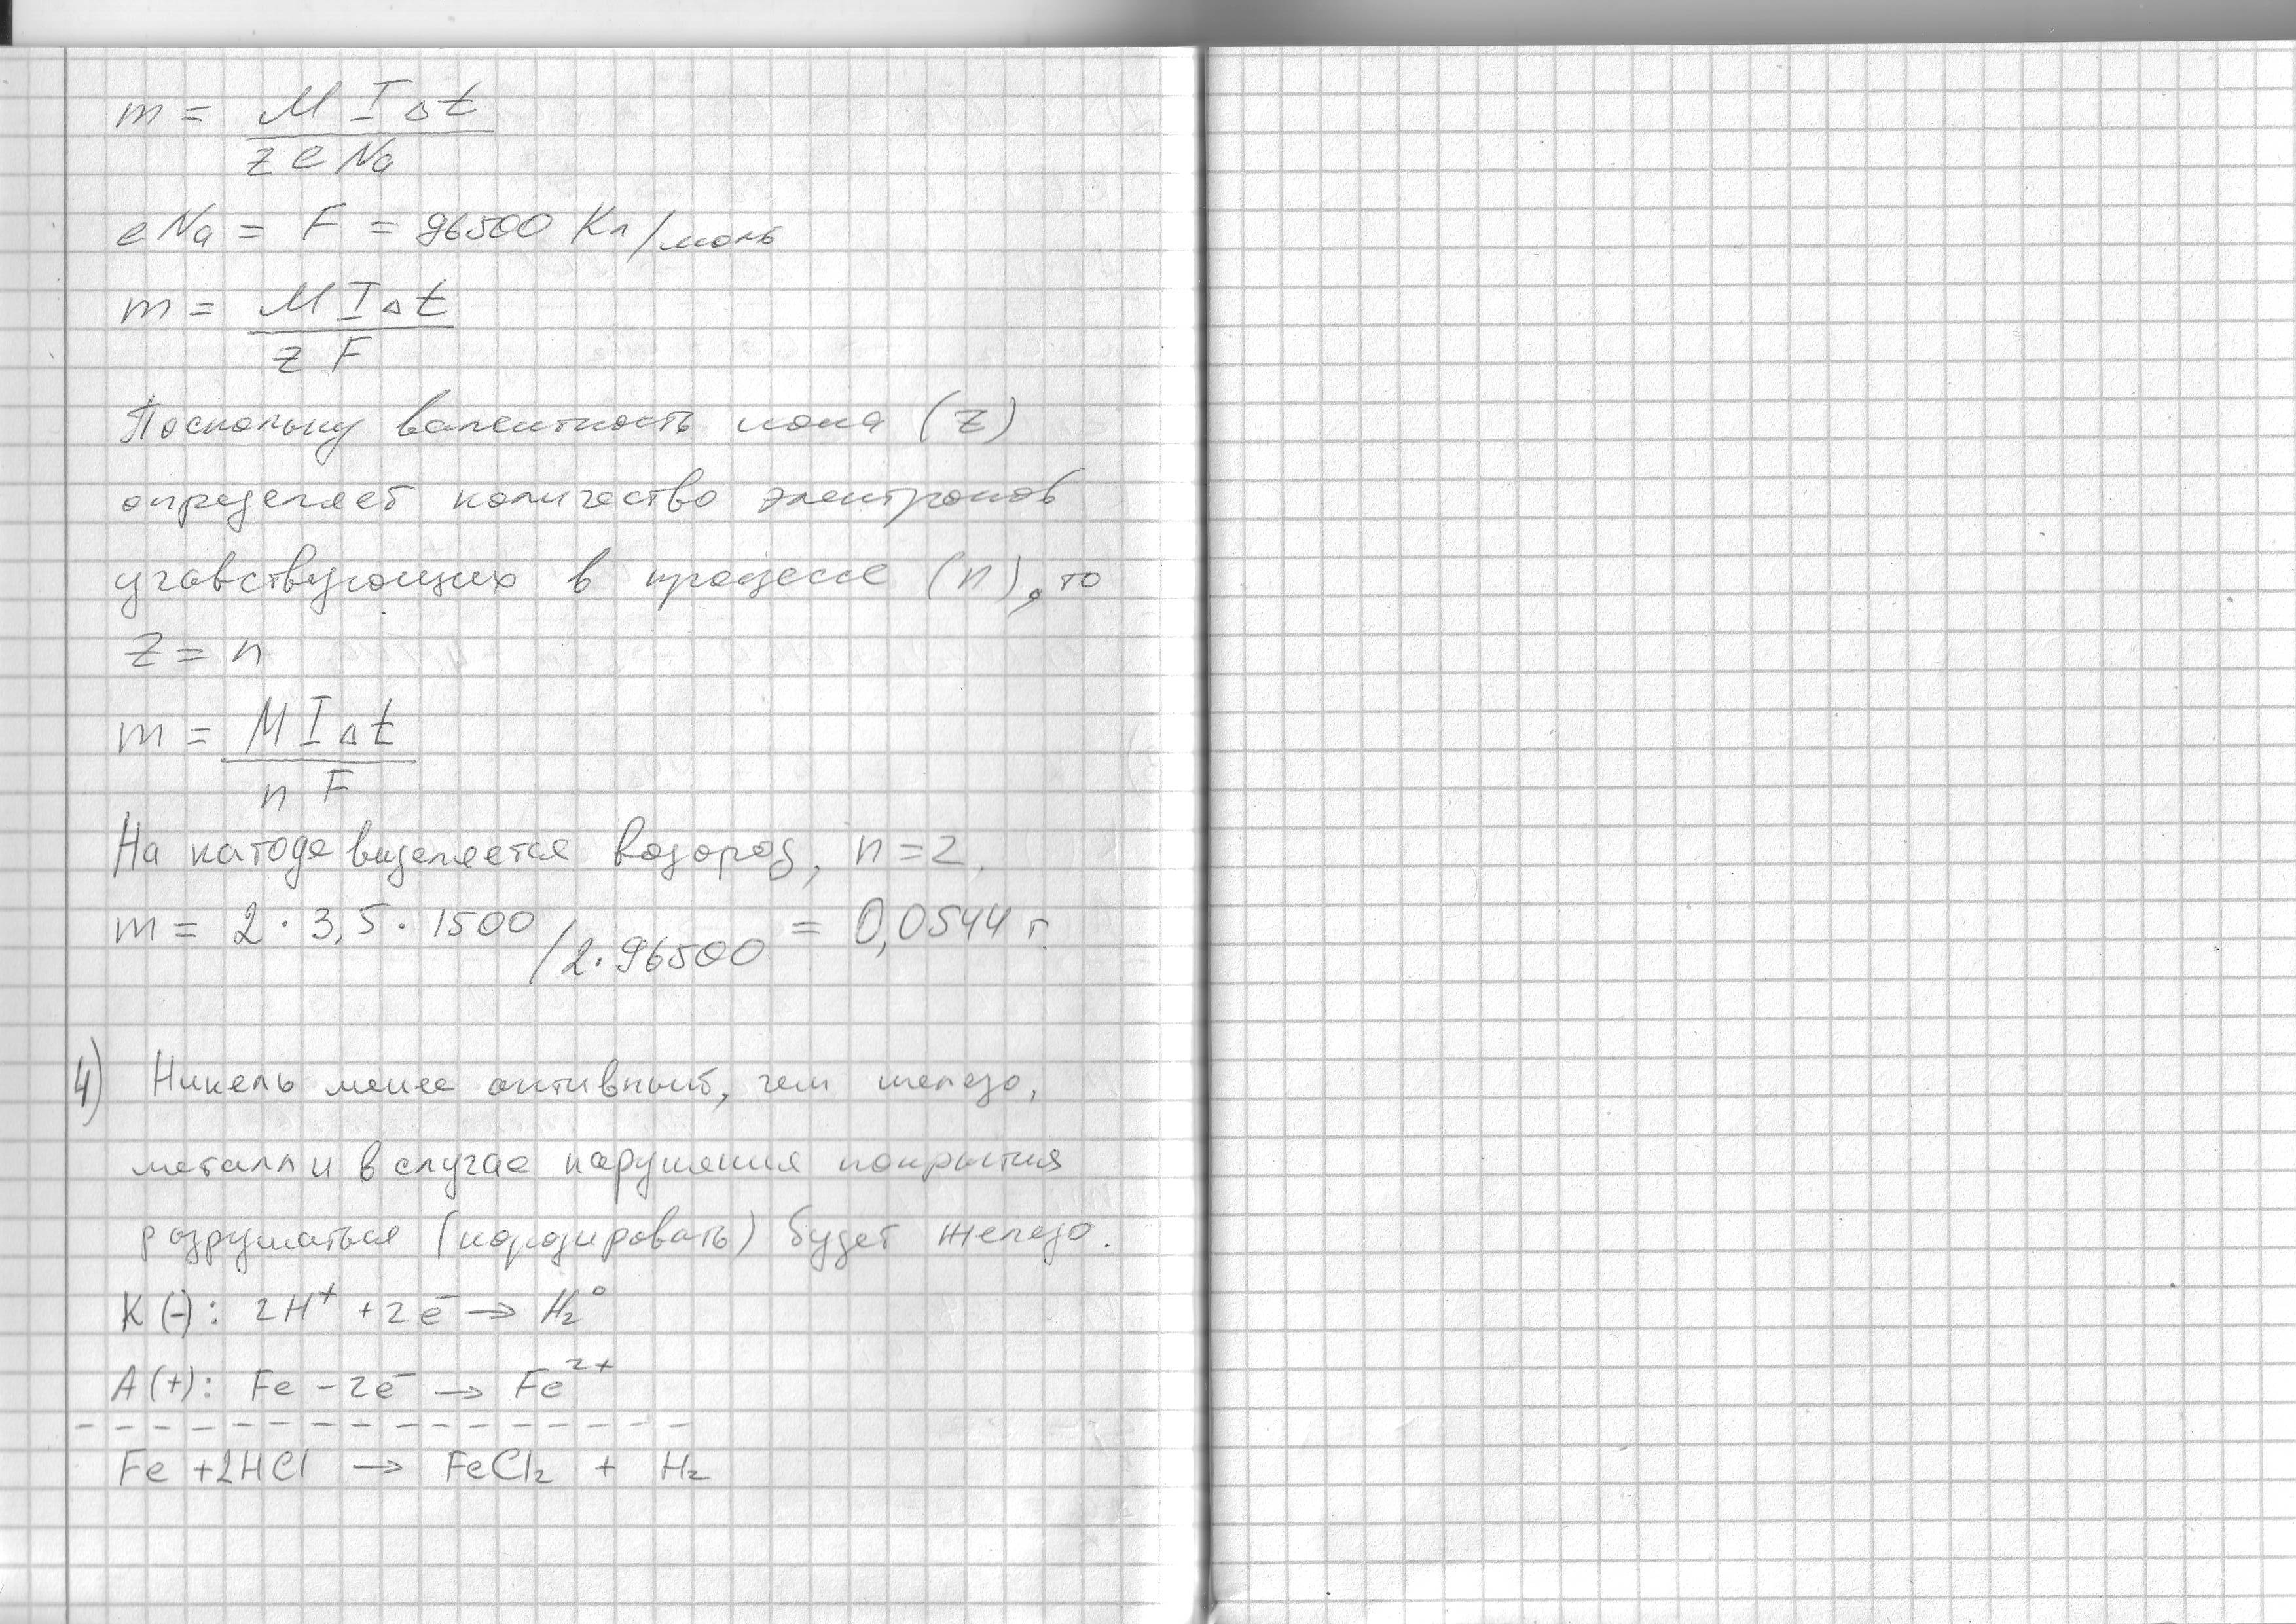 m = M I Δt / z e Na
e Na = F = 96500 Кл/моль
m = M I Δt / z F
Поскольку валентность иона (z)
определяет количество электронов
учавствующих в процессе (n), то
z = n
m = M I Δt / n F
На катоде выделяется водород, n = 2.
m = 2 · 3,5 · 1500 / 2 · 96500 = 0,0544 г.
4) Никель менее активный, чем железо,
металл и в случае нарушения покрытия
разрушаться (корозировать) будет железо.
К (-): 2H⁺ + 2e⁻ → H₂⁰
А (+): Fe - 2e⁻ → Fe²⁺
Fe + 2HCl → FeCl₂ + H₂